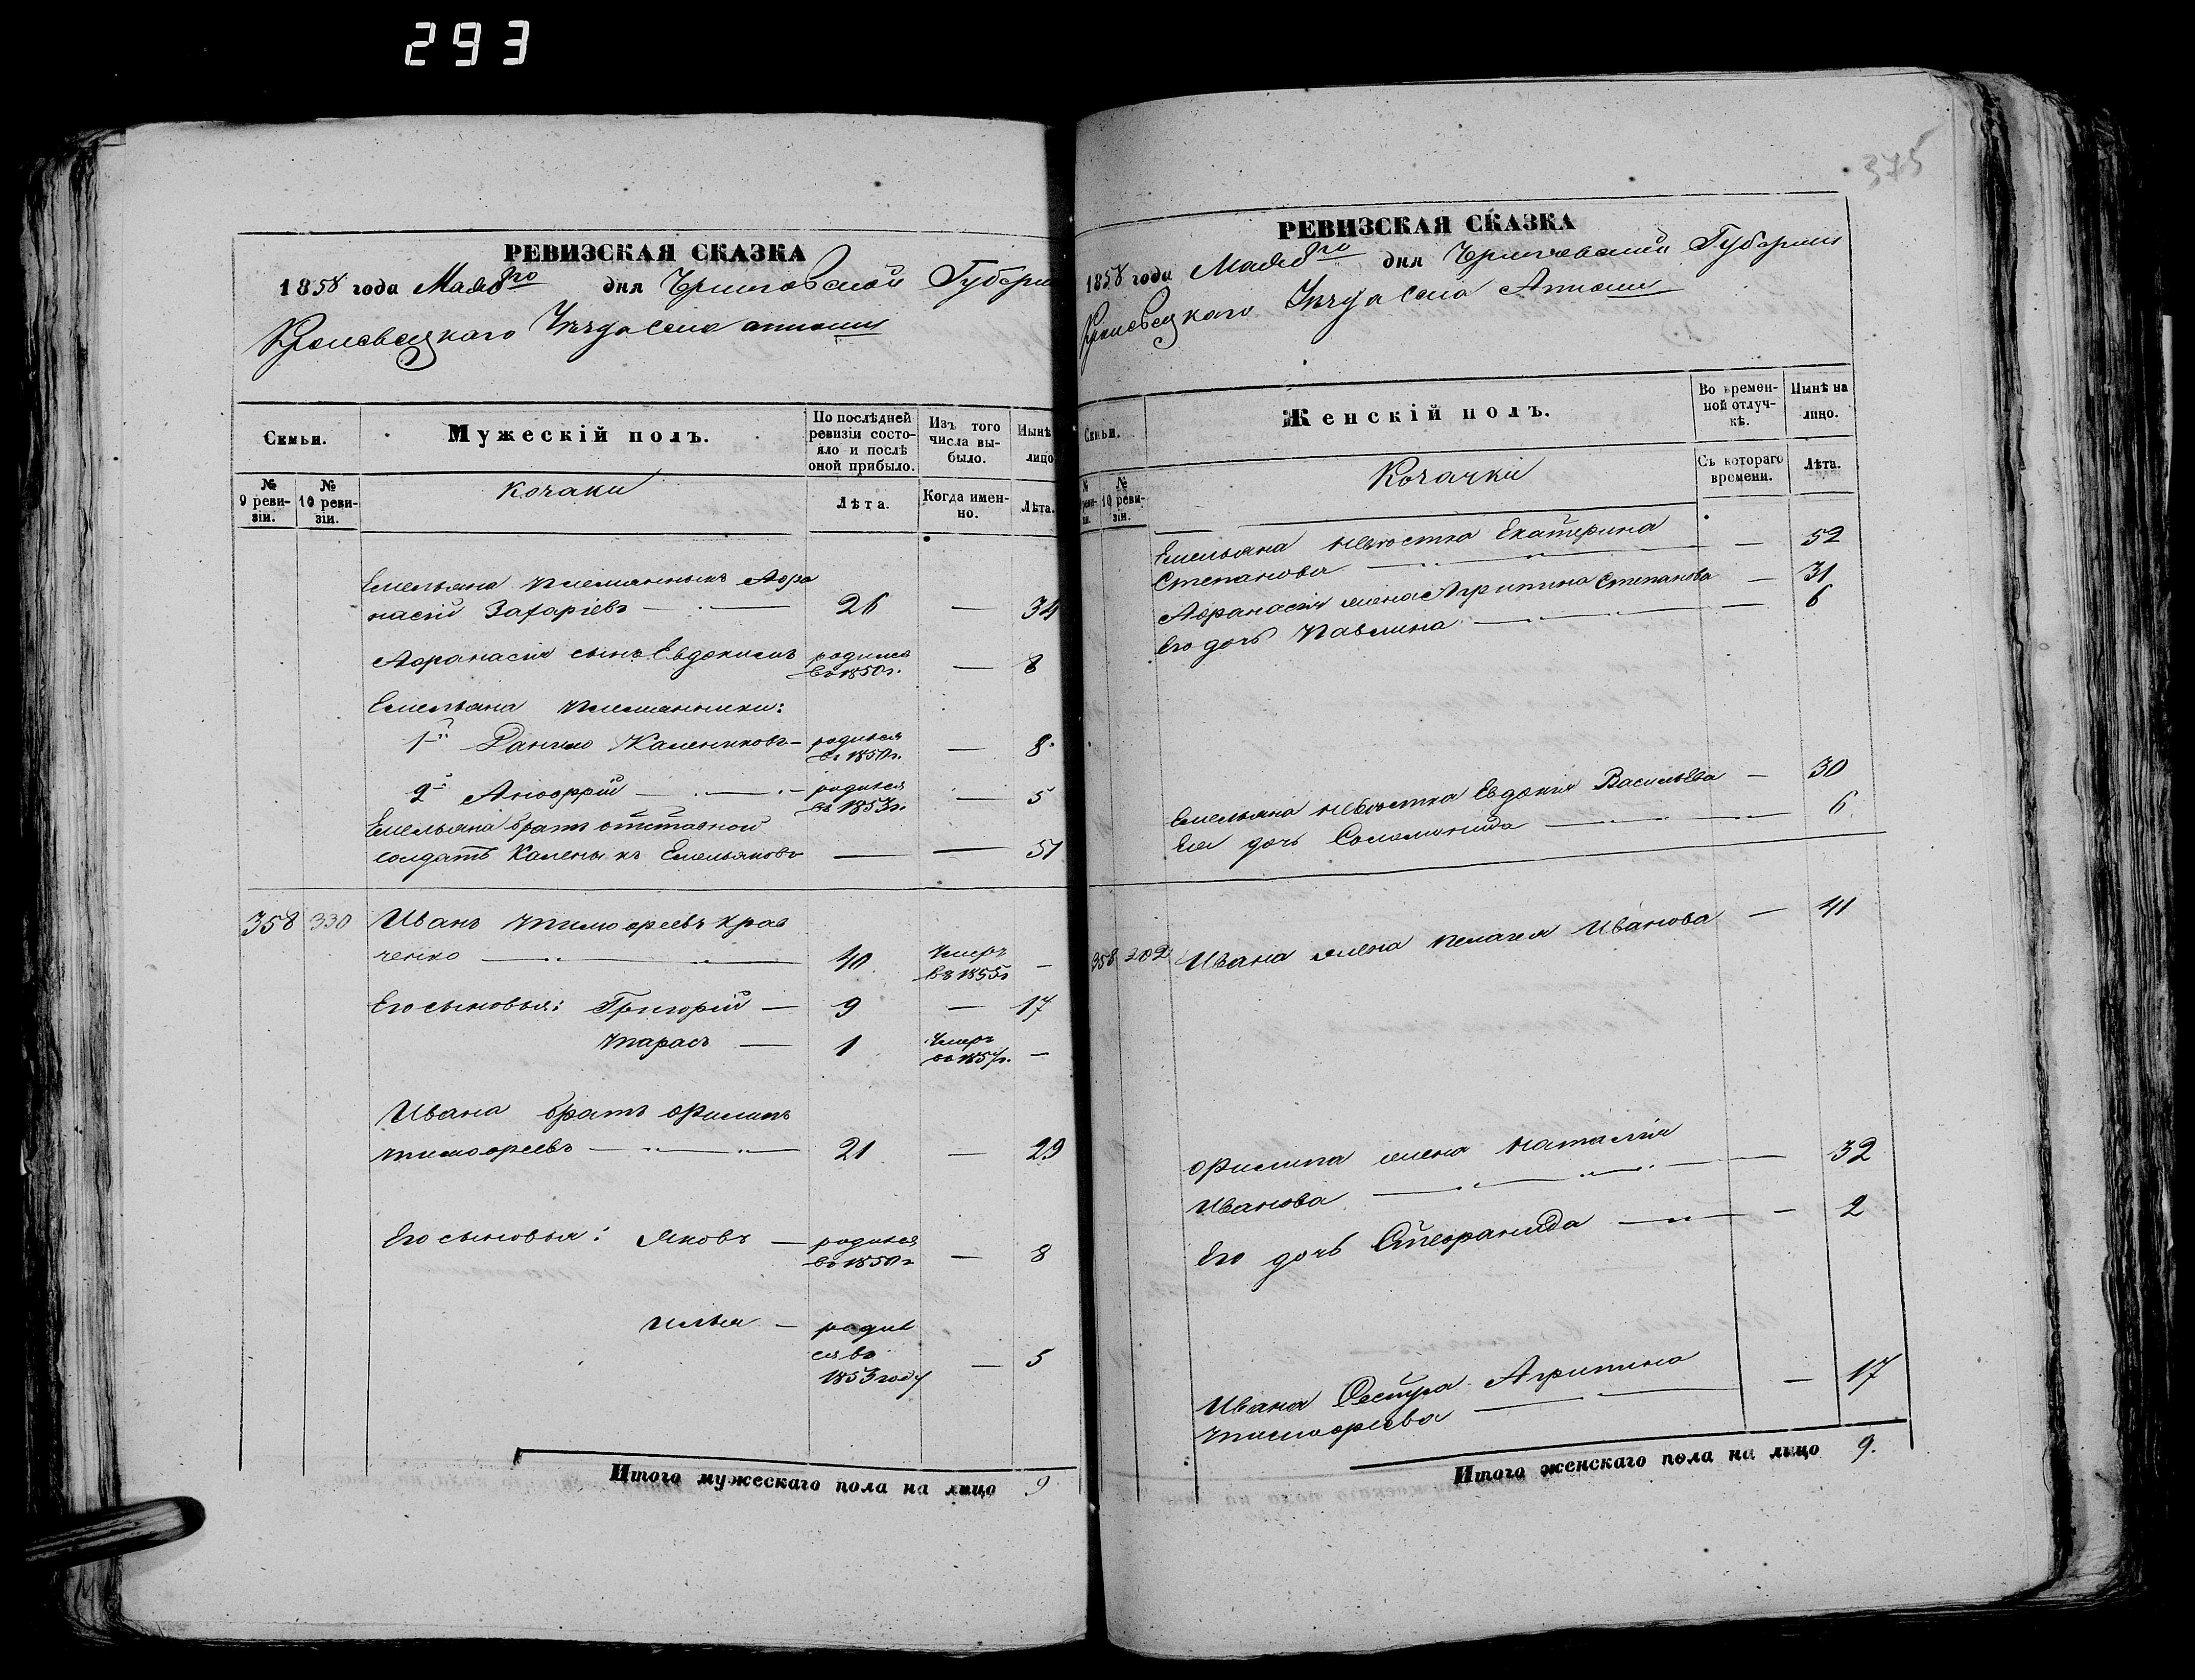 293
РЕВИЗСКАЯ СКАЗКА
1858 года Мая 8го дня Черниговской Губерн
Кролевецкаго Уѣзда Села
Семьи.
Мужескій полъ.
По послѣдней ревизіи состояло и послѣ оной прибыло.
Изъ того числа выбыло.
Нынѣ лицо
№ 9 ревизіи.
№ 10 ревизіи.
Козаки
Лѣта.
Когда именно.
Лѣта.
Емельяна племянникъ Афа
насій Захаріевъ 26 — 34
Афанасія сынъ Евдокимъ родился въ 1850г. — 8
Емельяна племянники:
1й Данило Калениковъ — родился въ 1850г. — 8
2й Аноффрій — родился въ 1853г. — 5
Емельяна братъ отставной
солдатъ Каленикъ Емельяновъ — — 51
358 330 Иванъ Тимофеевъ Крав
ченко 40 Умеръ въ 1855г —
Его сыновья: Григорій — 9 — 17
Тарасъ — 1 Умеръ —
Ивана братъ Филипъ
Тимофеевъ 21 — 29
Его сыновья: Яковъ — родился въ 1850г — 8
Илья — родил
ся въ
1853 году — 5
Итого мужескаго пола на лицо 9
375
РЕВИЗСКАЯ СКАЗКА
1858 года Мая 8го дня Черниговской Губернии
Кролевецкаго Уѣзда Села
Семьи.
Женскій полъ.
Во временной отлучкѣ.
Нынѣ на лицо.
№ 10 ревизіи.
Козачки
Съ котораго времени.
Лѣта.
Емельяна невѣстка Екатерина
Степанова — 52
Афанасія жена Агрипина Степанова — 31
Его дочь Павлина — 6
Емельяна невѣстка Евдокія Васильева — 30
Ея дочь Соломонида 6
358 202 Ивана жена Пелагея Иванова — 41
Филипа жена Наталія
Иванова — 32
Его дочь Стефанида — 2
Ивана Сестра Агрипина
Тимофеева — 17
Итого женскаго пола на лицо 9.